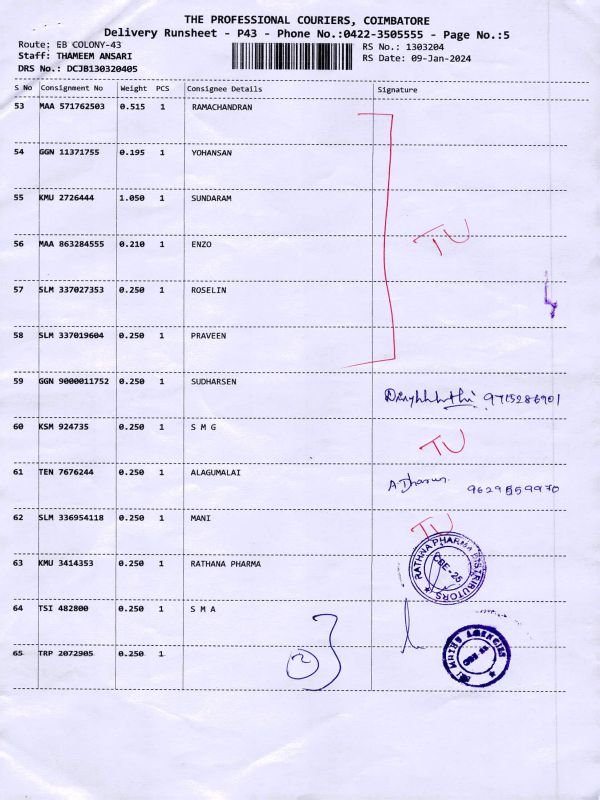 THE PROFESSIONAL COURIERS, COIMBATORE
Delivery Runsheet - P43 - Phone No.:0422-3505555 - Page No.:5
Route: EB COLONY-43
RS No.: 1303204
Staff: THAMEEM ANSARI
RS Date: 09-Jan-2024
DRS No.: DCJB130320405
S No Consignment No Weight PCS Consignee Details Signature
53 MAA 571762503 0.515 1 RAMACHANDRAN
54 GGN 11371755 0.195 1 YOHANSAN
55 KMU 2726444 1.050 1 SUNDARAM
TU
56 MAA 863284555 0.210 1 ENZO
57 SLM 337027353 0.250 1 ROSELIN
58 SLM 337019604 0.250 1 PRAVEEN
59 GGN 9000011752 0.250 1 SUDHARSEN
9715286901
60 KSM 924735 0.250 1 S M G
TU
61 TEN 7676244 0.250 1 ALAGUMALAI
A. Tharun 9629559970
62 SLM 336954118 0.250 1 MANI
TU
63 KMU 3414353 0.250 1 RATHANA PHARMA
RATHNA PHARMA DISTRIBUTORS
CBE-25
64 TSI 482800 0.250 1 S M A
65 TRP 2072905 0.250 1
2
AGENCIES